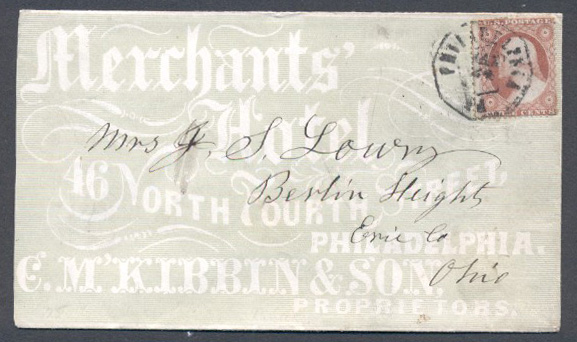 Merchants'
Hotel
46 NORTH FOURTH STREET,
PHILADELPHIA.
C. McKIBBIN & SON,
PROPRIETORS.
U.S. POSTAGE
CENTS
Mrs J. S. Lowry
Berlin Height
Erie Co
Ohio